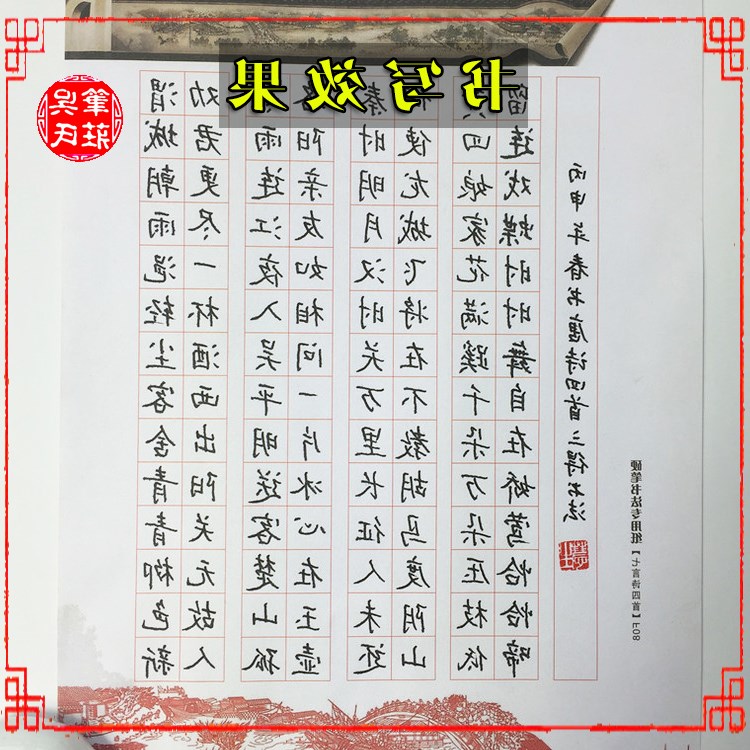 书写效果
吳氏
筆莊
渭城朝雨浥轻尘客舍青青柳色新
劝君更尽一杯酒西出阳关无故人
雨连江夜入吴平明送客楚山孤
阳亲友如相问一片冰心在玉壶
秦时明月汉时关万里长征人未还
使龙城飞将在不教胡马度阴山
四娘家花满蹊千朵万朵压枝低
留连戏蝶时时舞自在娇莺恰恰啼
丙申年春书唐诗四首 三得书法
硬笔书法专用纸【七言诗四首】F08